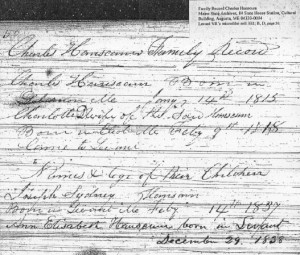 Family Record Charles Hanscom
Maine State Archives, 84 State House Station, Cultural
Building, Augusta, ME 04333-0084
Charles Hanscoms Family Record
Charles Hanscom Born in
Me Jany 14th 1815
Charlotte Wife of the Son Hanscom
Born in Me Feby 9th
Came to Levant
Names & Age of their Children
Joseph Sydney Hanscom
Born in Levant Me Feby 14th 1837
Ann Elisabeth Hanscom born in Levant
December 29, 1838